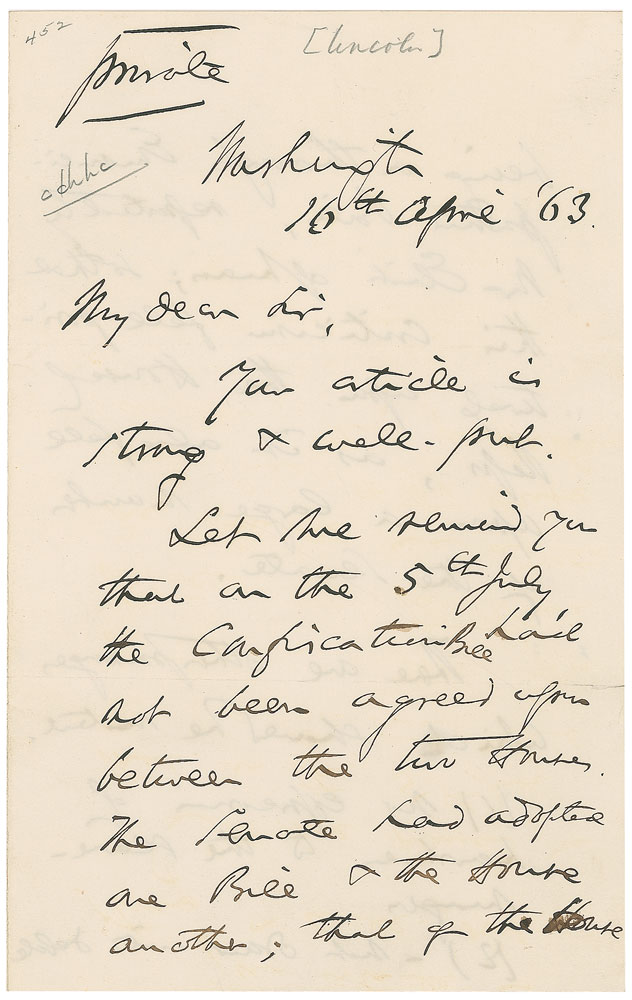 452
[Lincoln]
private
Washington
16th April '63.
My dear Sir,
Your article is
strong & well-put.
Let me remind you
that on the 5th July
the Confiscation Bill had
not been agreed upon
between the two Houses.
The Senate had adopted
one Bill & the House
another; that of the House